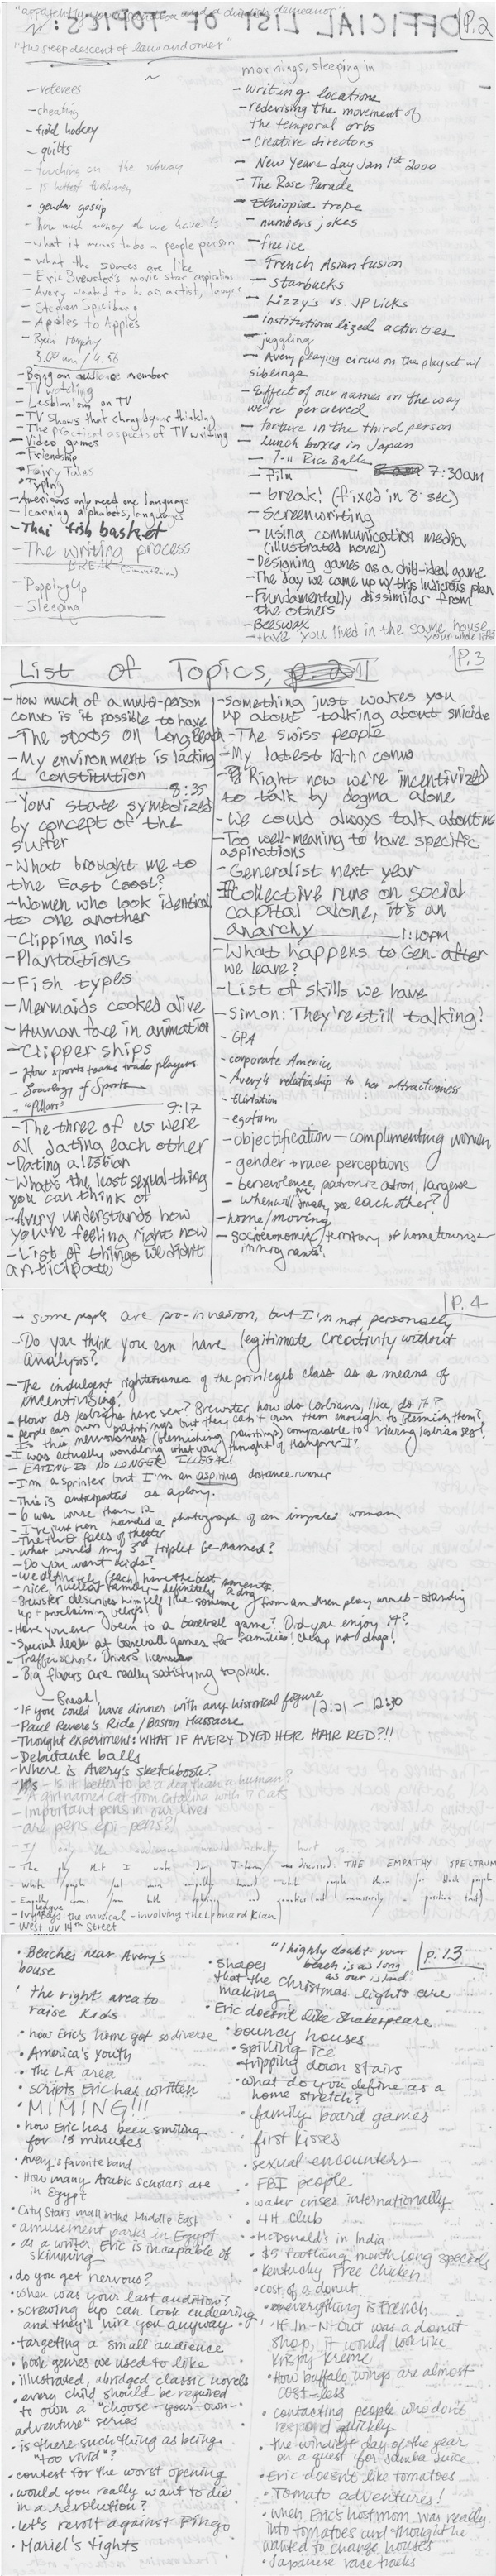 P.2
OFFICIAL LIST OF TOPICS:
"the steep descent of law and order"
- referees
- cheating
- field hockey
- quilts
- touching on the subway
- 15 hottest
- gender gossip
- how much money do we have
- what it means to be a people person
- what the spaces are like
- Eric Brewster's movie star aspirations
- Avery wanted to be an artist, lawyer
- Stephen Spielberg
- Apples to Apples
- Ryan Murphy
3:00 am / 4:56
- Being an audience member
- TV watching
- Lesbianism on TV
- TV shows that changed your thinking
- The practical aspects of TV writing
- Video games
- Friendship
- Fairy Tales
- Typing
- Americans only need one language
- learning alphabets, languages
- Thai fish basket
- The writing process
BREAK
- Popping Up
- Sleeping
mornings, sleeping in
- writing locations
- redevising the movement of
the temporal orbs
- Creative directors
- New Years day Jan 1st 2000
- The Rose Parade
- Ethiopia trope
- numbers jokes
- free ice
- French Asian fusion
- Starbucks
- Lizzy's vs. JP Licks
- institutionalized activities
- juggling
- Avery playing circus on the playset w/
siblings
- Effect of our names on the way
we're perceived
- torture in the third person
- Lunch boxes in Japan
- 7-11 Rice Balls
7:30am
- film
- break! (fixed in 3 sec)
- screenwriting
- using communication media
(illustrated novel)
- Designing games as a child-ideal game
- The day we came up w/ this ludicrous plan
- Fundamentally dissimilar from
the others
- Beeswax
- Have you lived in the same house
your whole life
P.3
List of Topics, II
- How much of a multi-person
convo is it possible to have
- The stoats on Long Beach
- My environment is lacking
1 constitution
8:35
- Your state symbolized
by concept of the
surfer
- What brought me to
the East Coast?
- Women who look identical
to one another
- Clipping nails
- Plantations
- Fish types
- Mermaids cooked alive
- Human face in animation
- Clipper ships
- How sports teams trade players
- Sociology of Sports
- "Pillars"
9:17
- The three of us were
all dating each other
- Dating a lesbian
- What's the least sexual thing
you can think of
- Avery understands how
you're feeling right now
- List of things we didn't
anticipate
- Something just wakes you
up about talking about suicide
- The Swiss people
- My latest 12-hr convo
- Right now we're incentivized
to talk by dogma alone
- We could always talk about me
- Too well-meaning to have specific
aspirations
- Generalist next year
Collective runs on social
capital alone, it's an
anarchy
1:10pm
- What happens to Gen. after
we leave?
- List of skills we have
- Simon: They're still talking?
- GPA
- corporate America
- Avery's relationship to her attractiveness
- flirtation
- egotism
- objectification - complimenting women
- gender + race perceptions
- benevolence, patronization, largesse
- when will we finally see each other?
- home/moving
- socioeconomic/territory of hometowns
immigrants!
P.4
- some people are pro-invasion, but I'm not personally
- Do you think you can have legitimate creativity without
analysis?
- The indulgent righteousness of the privileged class as a means of
incentivizing?
- How do lesbians have sex? Brewster how do lesbians, like, do it?
- people can own paintings but they can't own them enough to blemish them?
Is this nervousness (blemishing paintings) comparable to viewing lesbian sex?
- I was actually wondering what you thought of Hangover II?
- EATING IS NO LONGER ILLEGAL!
- I'm a sprinter but I'm an aspiring distance runner
- This is anticipated as a plong.
- 6 was worse than 12
- I've just been handed a photograph of an impaled woman
- The two faces of theater
- What would my 3rd triplet be named?
- Do you want kids?
- We definitely (each) have the best parents
- nice, nuclear family - definitely a dog
- Brewster describes himself like someone from an Ibsen play would - standing
up + proclaiming verbs!
- Have you ever been to a baseball game? Did you enjoy it?
- Special deals at baseball games for families! Cheap hot dogs!
- Traffic school. Drivers licenses
- Big flavors are really satisfying to pluck.
- Break! 12:21 - 12:30
- If you could have dinner with any historical figure
- Paul Revere's Ride / Boston Massacre
- Thought experiment: WHAT IF AVERY DYED HER HAIR RED?!!
- Debutante balls
- Where is Avery's sketchbook?
- Is it better to be a dog than a human?
- A girl named Cat from Catalina with 7 cats
- Important pens in our lives
- are pens epi-pens?!
- If only the audience would actually hurt us
- The play that I wrote Jong I-
discussed: THE EMPATHY SPECTRUM
- White people feel more empathy toward white people than for black people
- Ivy League Boys: the musical - involving the Leonard Clan
- West W 14th Street
p. 13
• Beaches near Avery's
house
• the right area to
raise kids
• how Eric's home got so diverse
• America's youth
• The LA area
• scripts Eric has written
• MIMING!!!
• how Eric has been smiling
for 15 minutes
• Avery's favorite band
• How many Arabic scholars are
in Egypt
• City Stars mall in the Middle East
• amusement parks in Egypt
• as a writer, Eric is incapable of
skimming
• do you get nervous?
• when was your last audition?
• screwing up can look endearing
and they'll hire you anyway
• targeting a small audience
• book genres we used to like
• illustrated, abridged classic novels
• every child should be required
to own a "choose-your-own-
adventure" series
• is there such thing as being
"too vivid"?
• contest for the worst opening
• would you really want to die
in a revolution?
• let's revolt against Pingo
• Mariel's tights
"I highly doubt your
beach is as long
as our island
• shapes
that the Christmas lights are
making
• Eric doesn't like Shakespeare
• bouncy houses
• spilling ice
• tripping down stairs
• what do you define as a
home stretch?
• family board games
• first kisses
• sexual encounters
• FBI people
• water crises internationally
• 4H Club
• McDonald's in India
• $5 footlong month long specials
• Kentucky Free Chicken
• cost of a donut
• everything is French
• If In-N-Out was a donut
shop, it would look like
Krispy Kreme
• How buffalo wings are almost
cost-less
• contacting people who don't
respond quickly
• the windiest day of the year
on a quest for Jamba Juice
• Eric doesn't like tomatoes
• Tomato adventures!
• when Eric's host mom was really
into tomatoes and thought he
wanted to change houses
• Japanese racetracks